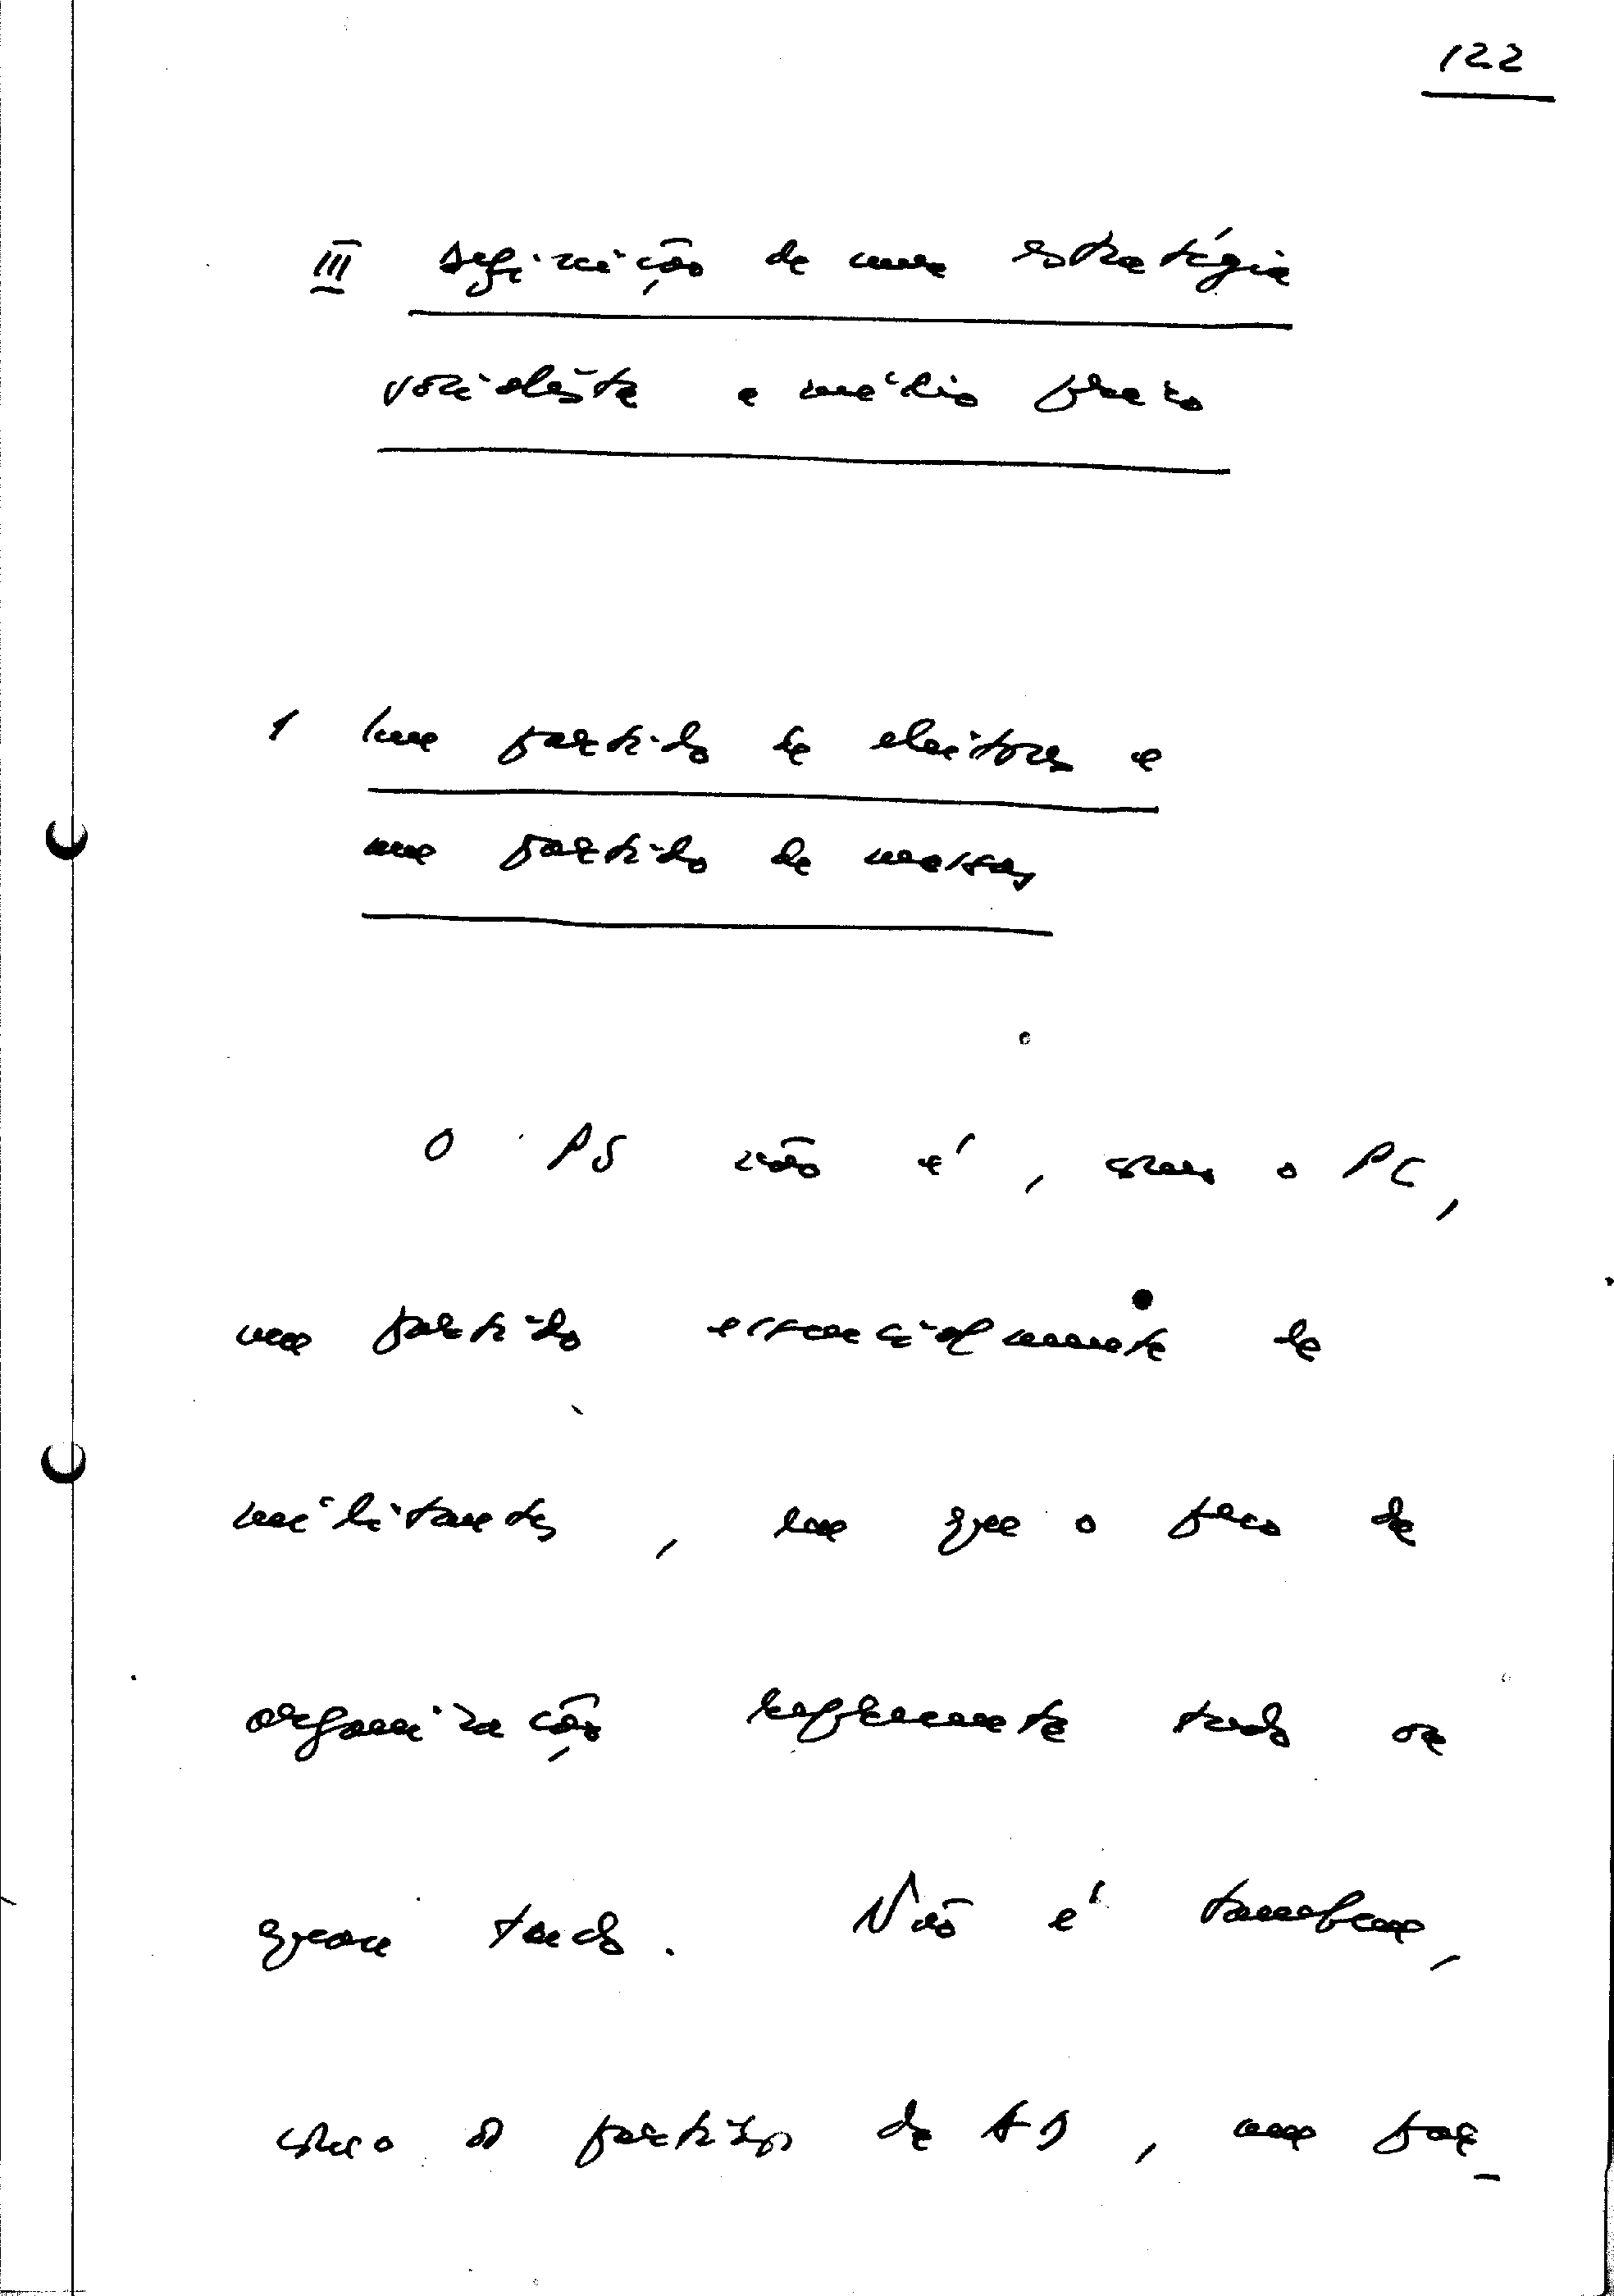 122
III Definição de uma estratégia
socialista a médio prazo
1 Um partido de eleitores e
um partido de massas
O PS não é, como o PC,
um partido essencialmente de
militantes, em que o peso de
organização representa tudo ou
quase tudo. Não é também,
como os partidos da AD, um par_